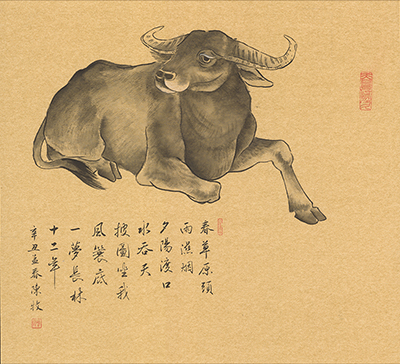 春草原頭
雨濕烟
夕陽渡口
水吞天
披圖重我
風簑底
一夢長林
十二年
辛丑孟春陳牧